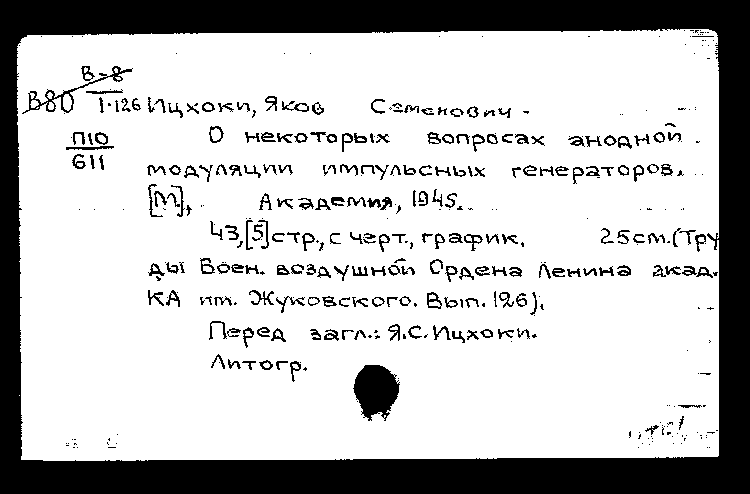 В-8
В80 1-126 Ицхоки, Яков Семенович -
П10
611
О некоторых вопросах анодной
модуляции импульсных генераторов.
[М], Академия, 1945.
43,[5]стр., с черт., график. 25см.(Тру
ды Воен. воздушной Ордена Ленина акад.
КА им. Жуковского. Вып. 126).
Перед загл.: Я.С. Ицхоки.
Литогр.